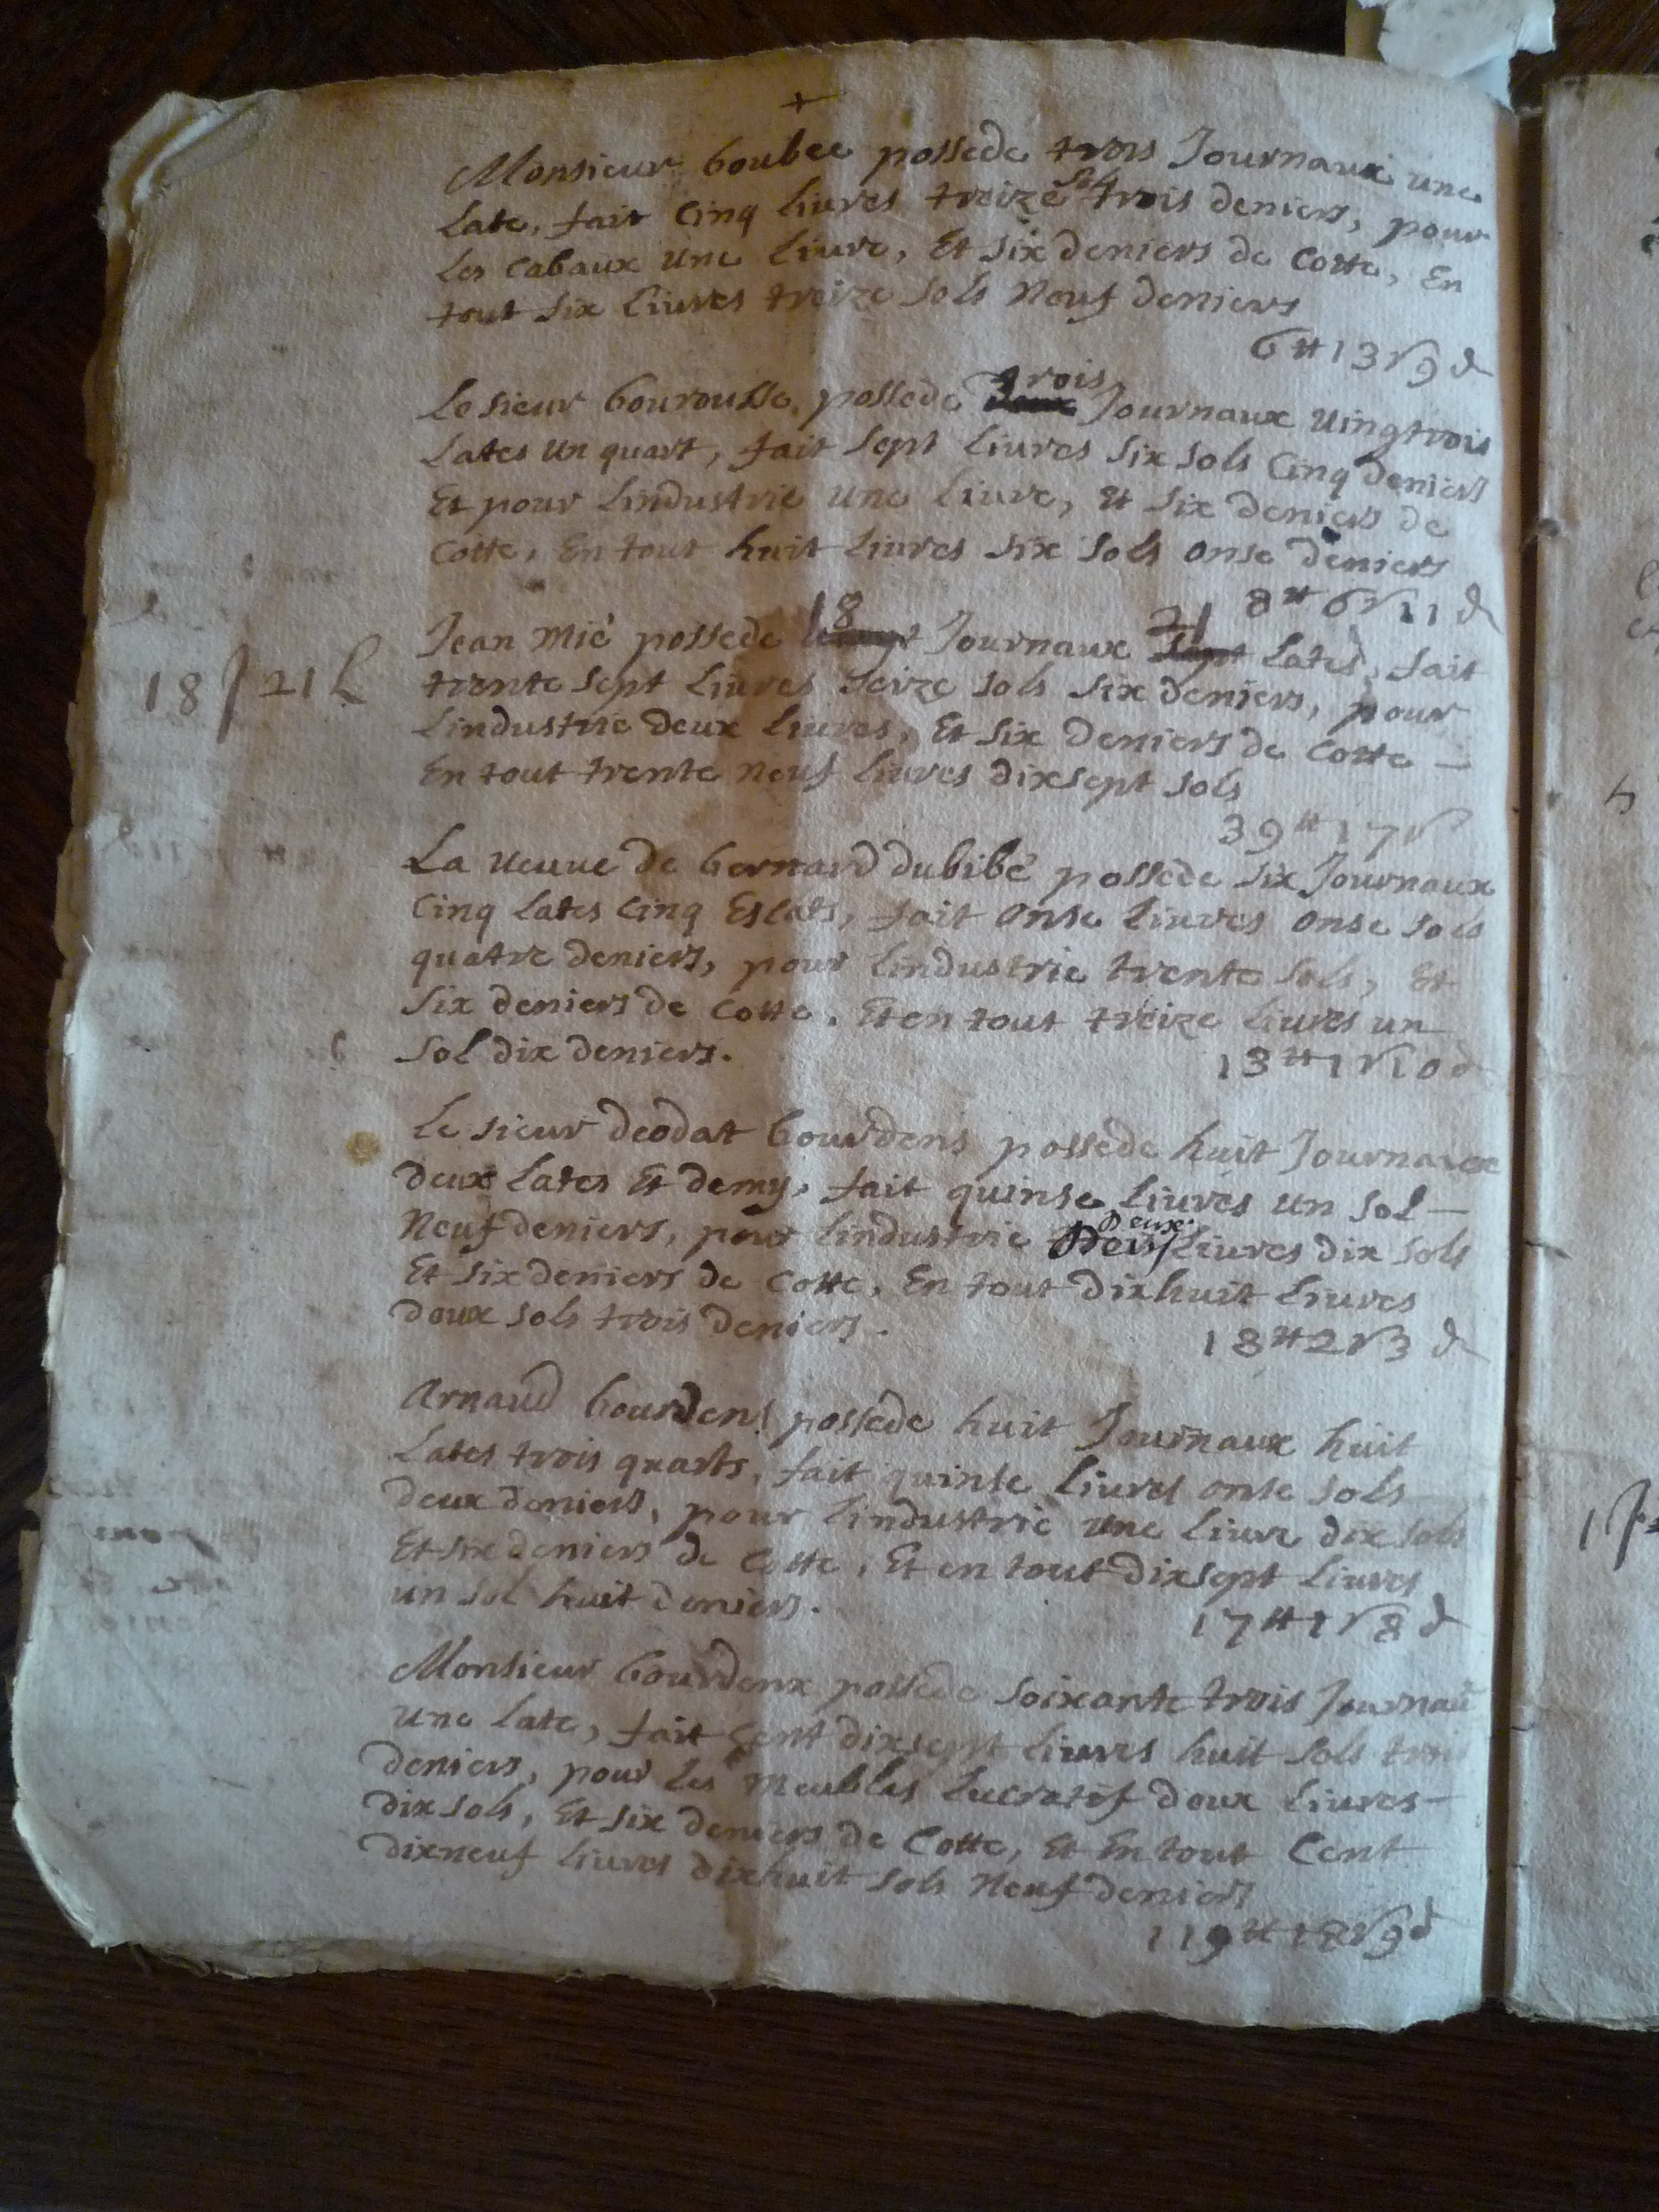 +
Monsieur boubee possede trois Journaux une
Late, fait Cinq livres treize sols trois deniers, pour
Les Cabaux une livre, Et six deniers de Cotte, En
tout six livres treize sols Neuf deniers
6 tt 13 s 9 d
Le sieur bourousse possede trois Journaux vingtrois
Lates un quart, fait Sept Livres Six sols Cinq deniers
Et pour Lindustrie une Livre, Et Six deniers de
Cotte, En tout huit Livres Six sols onse deniers
8 tt 6 s 11 d
Jean Mié possede 18 Journaux 21 Lates, fait
18 J 21 L
trente sept Livres Seize sols Six deniers, pour
Lindustrie deux Livres, Et Six deniers de Cotte
En tout trente neuf Livres dixsept sols
39 tt 17 s
La veuve de bernard dubibé possede six Journaux
Cinq Lates Cinq Escats, fait onse Livres onse sols
quatre deniers, pour Lindustrie trente Sols, Et
Six deniers de Cotte, Et en tout treize Livres un
Sol dix deniers.
13 tt 1 s 10 d
Le sieur deodat bourdens possede huit Journaux
deux Lates Et demy, fait quinse Livres un sol
Neuf deniers, pour Lindustrie Deux Livres dix sols
Et six deniers de Cotte, En tout dixhuit Livres
deux sols trois deniers.
18 tt 2 s 3 d
Arnaud bourdens possede huit Journaux huit
Lates trois quarts, fait quinse Livres onse sols
deux deniers, pour Lindustrie une Livre dix sols
Et six deniers de Cotte, Et en tout dixsept Livres
un sol huit deniers.
17 tt 1 s 8 d
Monsieur bourdenx possede soixante trois Journaũ
une Late, fait Cent dixsept Livres huit sols trois
deniers, pour Les Meubles Lucratif deux Livres
dix sols, Et six deniers de Cotte, Et En tout Cent
dixneuf Livres dixhuit sols Neuf deniers
119 tt 18 s 9 d